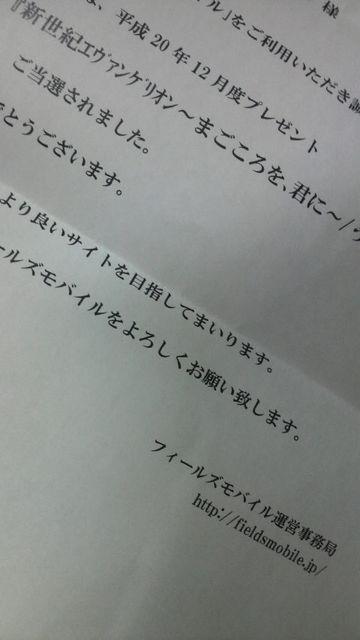 様
ル」をご利用いただき誠
、平成20年12月度プレゼント
『新世紀エヴァンゲリオン～まごころを、君に～/
ご当選されました。
とうございます。
より良いサイトを目指してまいります。
ールズモバイルをよろしくお願い致します。
フィールズモバイル運営事務局
http://fieldsmobile.jp/